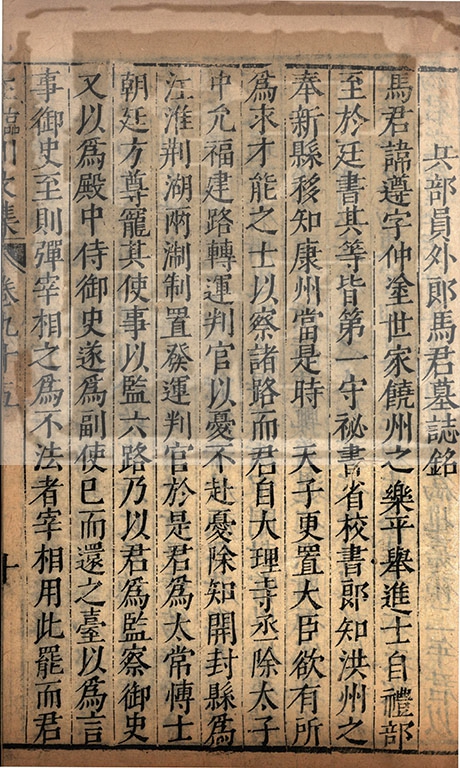 兵部員外郎馬君墓誌銘
馬君諱遵字仲塗世家饒州之樂平舉進士自禮部
至於廷書其等皆第一守祕書省校書郎知洪州之
奉新縣移知康州當是時　天子更置大臣欲有所
為求才能之士以察諸路而君自大理寺丞除太子
中允福建路轉運判官以憂不赴憂除知開封縣為
江淮荆湖兩淛制置發運判官於是君為太常愽士
朝廷方尊寵其使事以監六路乃以君為監察御史
又以為殿中侍御史遂為副使已而還之臺以為言
事御史至則彈宰相之為不法者宰相用此罷而君
臨川文集　卷九十五　十